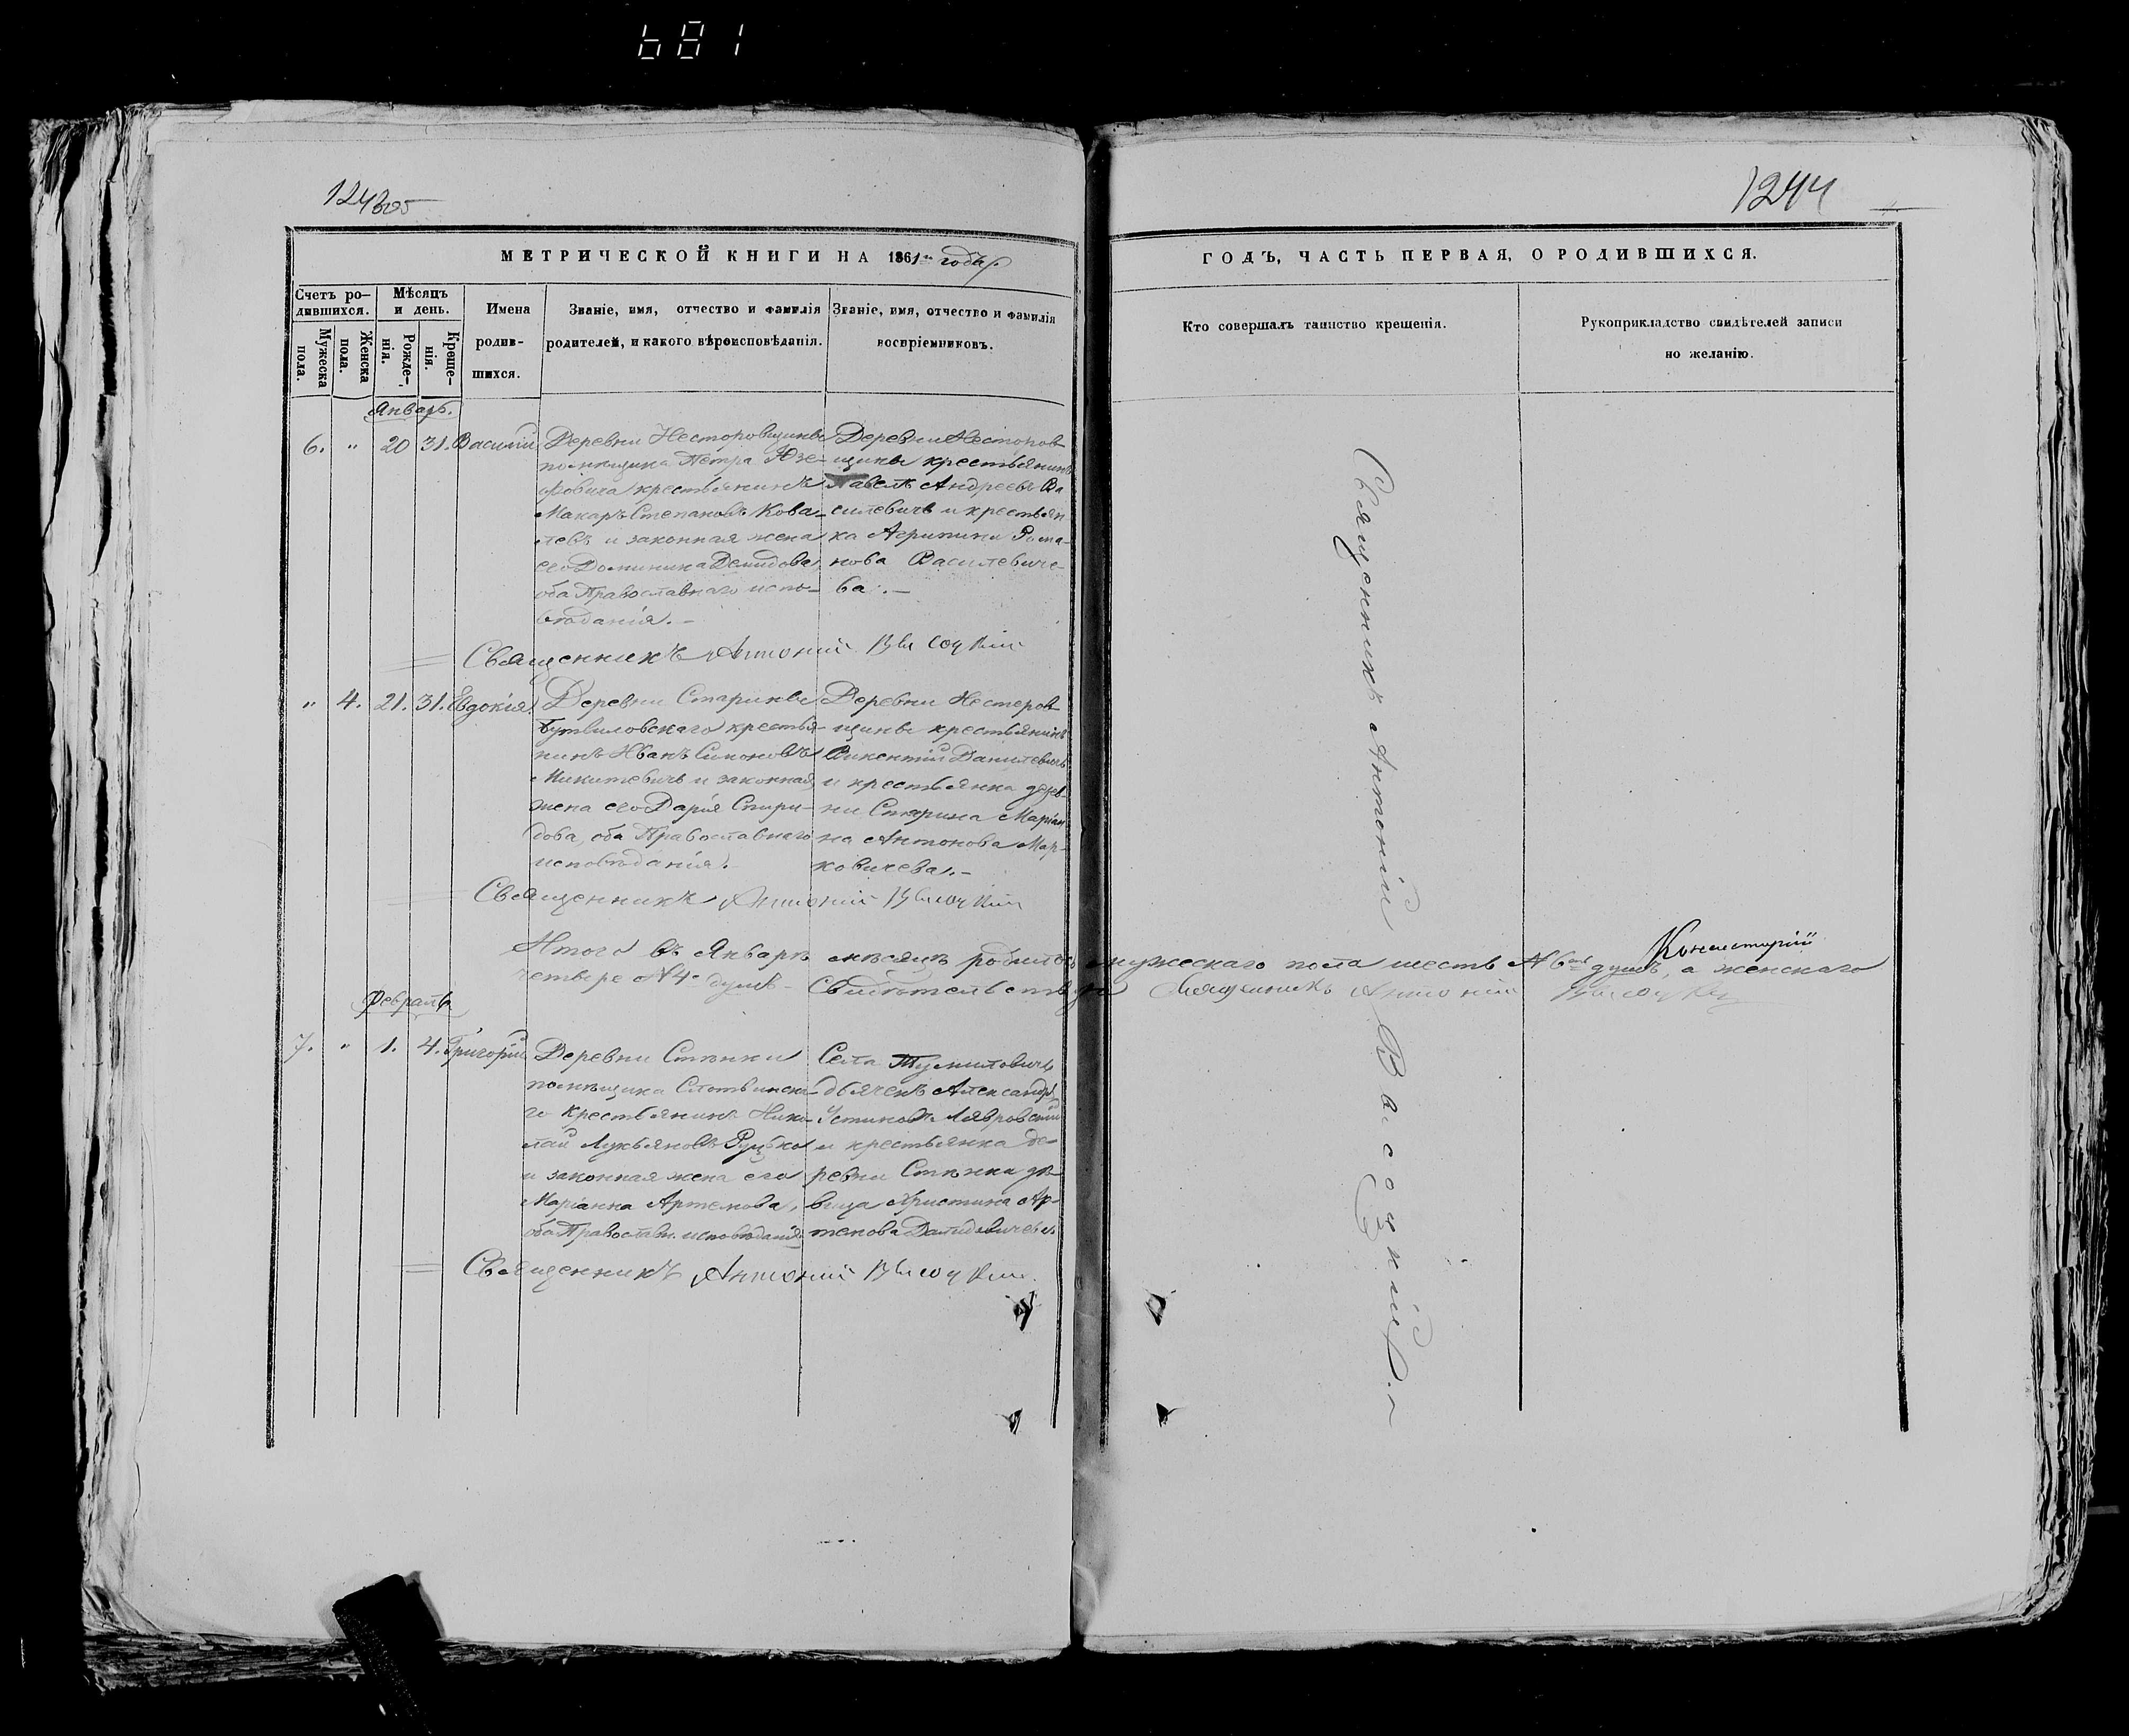 681
1244
МЕТРИЧЕСКОЙ КНИГИ НА 1861 года.
ГОДЪ, ЧАСТЬ ПЕРВАЯ, О РОДИВШИХСЯ.
Счетъ ро-
дившихся.
Мужеска
пола.
Женска
пола.
Мѣсяцъ
и день.
Рожде-
нія.
Креще-
нія.
Имена
родив-
шихся.
Званіе, имя, отчество и фамилія
родителей, и какого вѣроисповѣданія.
Званіе, имя, отчество и фамилія
воспріемниковъ.
Кто совершалъ таинство крещенія.
Рукоприкладство свидѣтелей записи
по желанію.
Январь.
6. " 20 31. Василій
Деревни Несторовщины
помѣщика Петра Юзе-
фовича крестьянинъ
Макаръ Степановъ Кова-
левъ и законная жена
его Доминика Демидова
оба Православнаго испо-
вѣданія.-
Деревни Несторов-
щины крестьянинъ
Павелъ Андреевъ Ва
силевичъ и крестьян
ка Агрипина Рома-
нова Василевиче-
ва.-
Священникъ Антоній Высоцкій
" 4. 21. 31. Евдокія.
Деревни Старины
Бутвиловскаго крестья-
нинъ Иванъ Симоновъ
Микитевичъ и законная
жена его Дарія Спири-
дова, оба Православнаго
исповѣданія.-
Деревни Нестеров
щины крестьянинъ
Викентій Данилевичъ
и крестьянка дерев-
ни Старина Маріан
на Антонова Мар-
ковичева.-
Священникъ Антоній Высоцкій
Итого въ Январѣ мѣсяцѣ родилось мужескаго пола шесть N 6 душъ, а женскаго
Консисторіи
четвере N 4. душъ - Священникъ Антоній Высоцкій
Февраль
7. " 1. 4. Григорій
Деревни Стѣнки
помѣщика Слотвинска-
го крестьянинъ Нико-
лай Лукьяновъ Руцько
и законная жена его
Маріанна Артемова,
оба Православн. исповѣданія
Села Тумиловичъ
дьячекъ Александръ
Устиновъ Лавровскій
и крестьянка де-
ревни Стѣнка дѣ-
вица Христина Ар-
темова Данидовичева
Священникъ Антоній Высоцкій.
Священникъ Антоній Высоцкій.